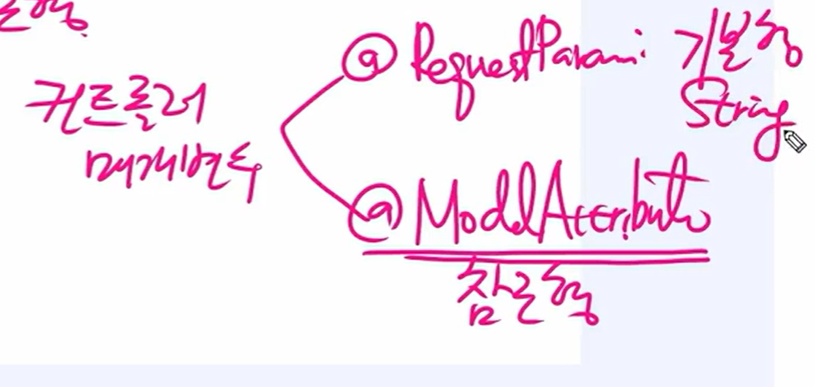 컨트롤러
매개변수
@RequestParam: 기본형
String
@ModelAttribute
참조형